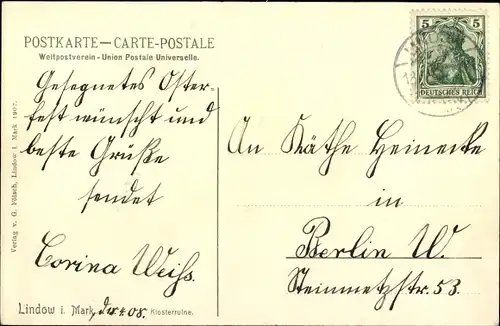 POSTKARTE — CARTE-POSTALE
Weltpostverein - Union Postale Universelle.
Gesegnetes Oster-
fest wünscht und
beste Grüße
sendet
Corina Weiss.
Lindow i. Mark, Klosterruine.
Verlag v. G. Fülsch, Lindow i. Mark 1907.
5 5
DEUTSCHES REICH
An Käthe Heinecke
in
Berlin W.
Steinmetzstr. 53.